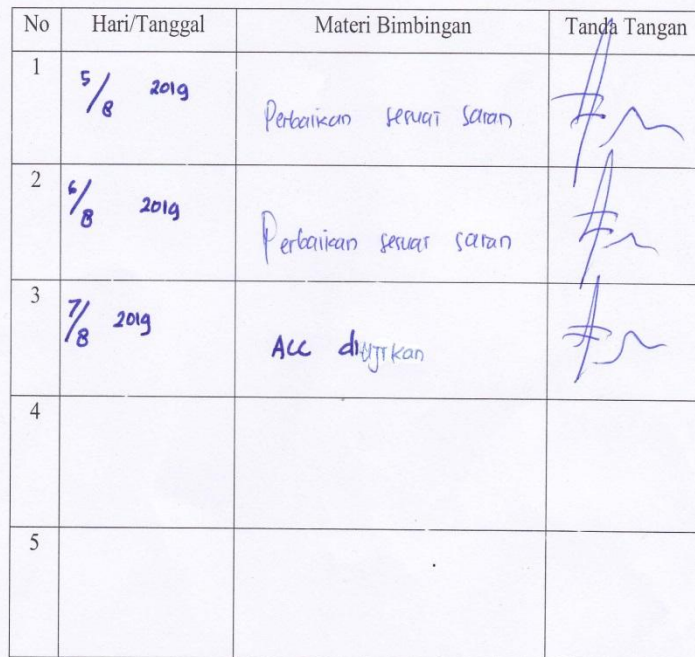 No Hari/Tanggal Materi Bimbingan Tanda Tangan
1 5/8 2019 Perbaikan sesuai saran
2 6/8 2019 Perbaikan sesuai saran
3 7/8 2019 ACC diujikan
4
5